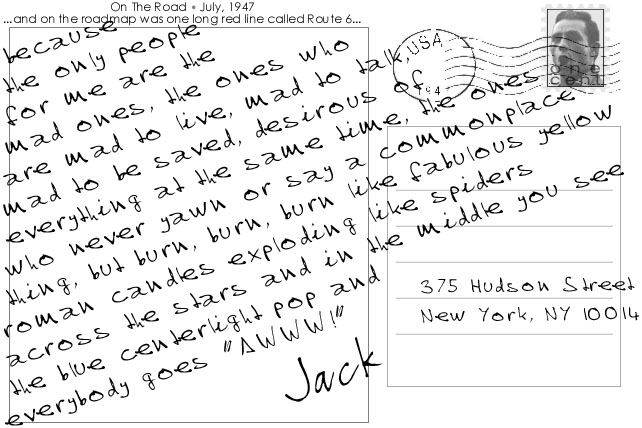 On The Road • July, 1947
...and on the roadmap was one long red line called Route 6...
because
the only people
for me are the
mad ones, the ones who
are mad to live, mad to talk,
mad to be saved, desirous of
everything at the same time, the ones
who never yawn or say a commonplace
thing, but burn, burn, burn like fabulous yellow
roman candles exploding like spiders
across the stars and in the middle you see
the blue centerlight pop and
everybody goes "AWWW!"
Jack
USA
94
375 Hudson Street
New York, NY 10014